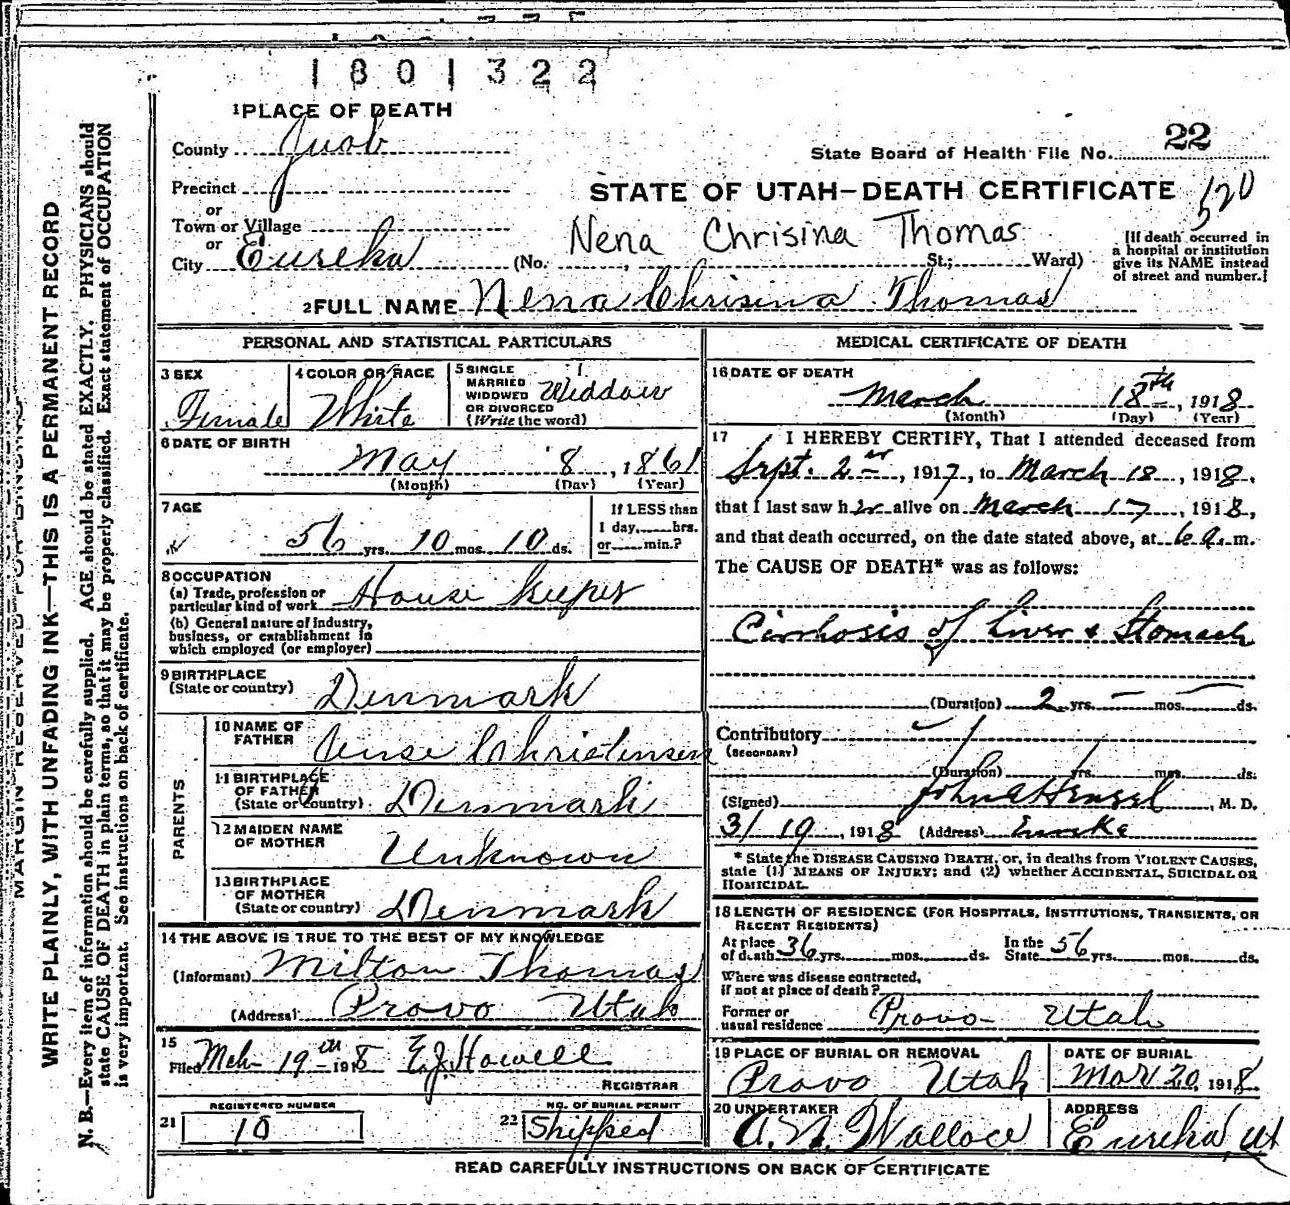 1801322
1 PLACE OF DEATH
County Juab
State Board of Health File No. 22
Precinct
STATE OF UTAH—DEATH CERTIFICATE 520
or
Town or Village
or
City Eureka
Nena Chrisina Thomas
(No. , St.; Ward)
[If death occurred in a hospital or institution give its NAME instead of street and number.]
2 FULL NAME Nena Chrisina Thomas
PERSONAL AND STATISTICAL PARTICULARS
3 SEX
Female
4 COLOR OR RACE
White
5 SINGLE
MARRIED
WIDOWED
OR DIVORCED
(Write the word)
Widdow
6 DATE OF BIRTH
May 8, 1861
(Month) (Day) (Year)
7 AGE
56 yrs. 10 mos. 10 ds.
If LESS than
1 day, hrs.
or min.?
8 OCCUPATION
(a) Trade, profession or
particular kind of work House Keeper
(b) General nature of industry,
business, or establishment in
which employed (or employer)
9 BIRTHPLACE
(State or country) Denmark
PARENTS
10 NAME OF
FATHER Jense Christensen
11 BIRTHPLACE
OF FATHER
(State or country) Denmark
12 MAIDEN NAME
OF MOTHER Unknown
13 BIRTHPLACE
OF MOTHER
(State or country) Denmark
14 THE ABOVE IS TRUE TO THE BEST OF MY KNOWLEDGE
(Informant) Milton Thomas
(Address) Provo Utah
15
Filed Mch 19th 1918 E.J. Howell
REGISTRAR
REGISTERED NUMBER
21 10
NO. OF BURIAL PERMIT
22 Shipped
MEDICAL CERTIFICATE OF DEATH
16 DATE OF DEATH
March 18th, 1918
(Month) (Day) (Year)
17 I HEREBY CERTIFY, That I attended deceased from
Sept. 2, 1917, to March 18, 1918,
that I last saw her alive on March 17, 1918,
and that death occurred, on the date stated above, at 6 a.m.
The CAUSE OF DEATH* was as follows:
Cirrhosis of Liver & Stomach
(Duration) 2 yrs. — mos. — ds.
Contributory
(SECONDARY)
(Duration) yrs. mos. ds.
(Signed) John Hensel, M. D.
3/19, 1918 (Address) Eureka
* State the DISEASE CAUSING DEATH, or, in deaths from VIOLENT CAUSES,
state (1) MEANS OF INJURY; and (2) whether ACCIDENTAL, SUICIDAL OR
HOMICIDAL.
18 LENGTH OF RESIDENCE (FOR HOSPITALS, INSTITUTIONS, TRANSIENTS, OR
RECENT RESIDENTS)
At place
of death 36 yrs. mos. ds.
In the
State 56 yrs. mos. ds.
Where was disease contracted,
if not at place of death?
Former or
usual residence Provo Utah
19 PLACE OF BURIAL OR REMOVAL
Provo Utah
DATE OF BURIAL
Mar 20, 1918
20 UNDERTAKER
A. N. Wallace
ADDRESS
Eureka, Ut
READ CAREFULLY INSTRUCTIONS ON BACK OF CERTIFICATE
MARGIN RESERVED FOR BINDING
WRITE PLAINLY, WITH UNFADING INK—THIS IS A PERMANENT RECORD
N. B.—Every item of information should be carefully supplied. AGE should be stated EXACTLY. PHYSICIANS should
state CAUSE OF DEATH in plain terms, so that it may be properly classified. Exact statement of OCCUPATION
is very important. See instructions on back of certificate.